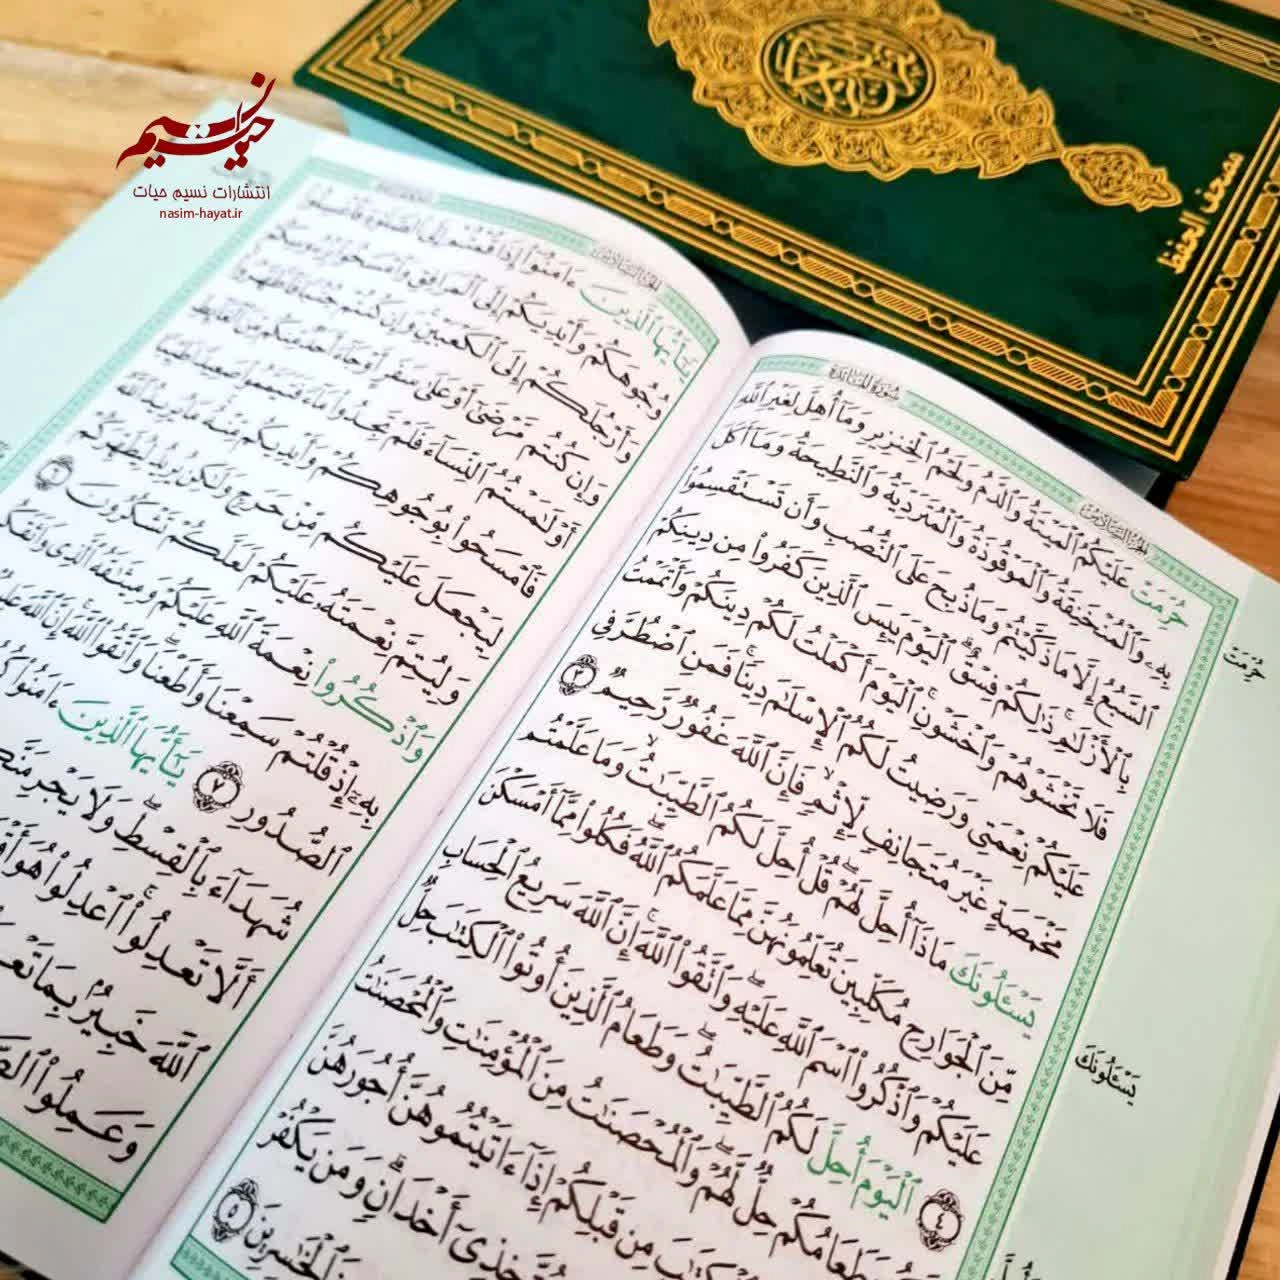 نسیم حیات
انتشارات نسیم حیات
nasim-hayat.ir
مصحف الحفظ
سُورَةُ المَائِدَةِ
الجُزءُ السَّادِسُ
حُرِّمَتْ عَلَيْكُمُ ٱلْمَيْتَةُ وَٱلدَّمُ وَلَحْمُ ٱلْخِنزِيرِ وَمَآ أُهِلَّ لِغَيْرِ ٱللَّهِ
بِهِۦ وَٱلْمُنْخَنِقَةُ وَٱلْمَوْقُوذَةُ وَٱلْمُتَرَدِّيَةُ وَٱلنَّطِيحَةُ وَمَآ أَكَلَ
ٱلسَّبُعُ إِلَّا مَا ذَكَّيْتُمْ وَمَا ذُبِحَ عَلَى ٱلنُّصُبِ وَأَن تَسْتَقْسِمُوا۟
بِٱلْأَزْلَٰمِ ۚ ذَٰلِكُمْ فِسْقٌ ۗ ٱلْيَوْمَ يَئِسَ ٱلَّذِينَ كَفَرُوا۟ مِن دِينِكُمْ
فَلَا تَخْشَوْهُمْ وَٱخْشَوْنِ ۚ ٱلْيَوْمَ أَكْمَلْتُ لَكُمْ دِينَكُمْ وَأَتْمَمْتُ
عَلَيْكُمْ نِعْمَتِى وَرَضِيتُ لَكُمُ ٱلْإِسْلَٰمَ دِينًا ۚ فَمَنِ ٱضْطُرَّ فِى
مَخْمَصَةٍ غَيْرَ مُتَجَانِفٍ لِّإِثْمٍ ۙ فَإِنَّ ٱللَّهَ غَفُورٌ رَّحِيمٌ ٣
يَسْـَٔلُونَكَ مَاذَآ أُحِلَّ لَهُمْ ۖ قُلْ أُحِلَّ لَكُمُ ٱلطَّيِّبَٰتُ ۙ وَمَا عَلَّمْتُم
مِّنَ ٱلْجَوَارِحِ مُكَلِّبِينَ تُعَلِّمُونَهُنَّ مِمَّا عَلَّمَكُمُ ٱللَّهُ ۖ فَكُلُوا۟ مِمَّآ أَمْسَكْنَ
عَلَيْكُمْ وَٱذْكُرُوا۟ ٱسْمَ ٱللَّهِ عَلَيْهِ ۖ وَٱتَّقُوا۟ ٱللَّهَ ۚ إِنَّ ٱللَّهَ سَرِيعُ ٱلْحِسَابِ
٤ ٱلْيَوْمَ أُحِلَّ لَكُمُ ٱلطَّيِّبَٰتُ ۖ وَطَعَامُ ٱلَّذِينَ أُوتُوا۟ ٱلْكِتَٰبَ حِلٌّ
وَطَعَامُكُمْ حِلٌّ لَّهُمْ ۖ وَٱلْمُحْصَنَٰتُ مِنَ ٱلْمُؤْمِنَٰتِ وَٱلْمُحْصَنَٰتُ
ٱلْكِتَٰبَ مِن قَبْلِكُمْ إِذَآ ءَاتَيْتُمُوهُنَّ أُجُورَهُنَّ
مُتَّخِذِىٓ أَخْدَانٍ ۗ وَمَن يَكْفُرْ
ٱلْخَٰسِرِينَ ٥
حُرِّمَتْ
يَسْـَٔلُونَكَ
الجُزءُ السَّادِسُ
يَٰٓأَيُّهَا ٱلَّذِينَ ءَامَنُوٓا۟ إِذَا قُمْتُمْ إِلَى ٱلصَّلَوٰةِ فَٱغْسِلُوا۟
وُجُوهَكُمْ وَأَيْدِيَكُمْ إِلَى ٱلْمَرَافِقِ وَٱمْسَحُوا۟ بِرُءُوسِكُمْ
وَأَرْجُلَكُمْ إِلَى ٱلْكَعْبَيْنِ ۚ وَإِن كُنتُمْ جُنُبًا فَٱطَّهَّرُوا۟ ۚ
وَإِن كُنتُم مَّرْضَىٰٓ أَوْ عَلَىٰ سَفَرٍ أَوْ جَآءَ أَحَدٌ مِّنكُم مِّنَ ٱلْغَآئِطِ
أَوْ لَٰمَسْتُمُ ٱلنِّسَآءَ فَلَمْ تَجِدُوا۟ مَآءً فَتَيَمَّمُوا۟ صَعِيدًا طَيِّبًا
فَٱمْسَحُوا۟ بِوُجُوهِكُمْ وَأَيْدِيكُم مِّنْهُ ۚ مَا يُرِيدُ ٱللَّهُ
لِيَجْعَلَ عَلَيْكُم مِّنْ حَرَجٍ وَلَٰكِن يُرِيدُ لِيُطَهِّرَكُمْ
وَلِيُتِمَّ نِعْمَتَهُۥ عَلَيْكُمْ لَعَلَّكُمْ تَشْكُرُونَ ٦
وَٱذْكُرُوا۟ نِعْمَةَ ٱللَّهِ عَلَيْكُمْ وَمِيثَٰقَهُ ٱلَّذِى وَاثَقَكُم
بِهِۦٓ إِذْ قُلْتُمْ سَمِعْنَا وَأَطَعْنَا ۖ وَٱتَّقُوا۟ ٱللَّهَ ۚ إِنَّ ٱللَّهَ عَلِيمٌ
ٱلصُّدُورِ ٧ يَٰٓأَيُّهَا ٱلَّذِينَ ءَامَنُوا۟
شُهَدَآءَ بِٱلْقِسْطِ ۖ وَلَا يَجْرِمَنَّكُمْ
أَلَّا تَعْدِلُوا۟ ۚ ٱعْدِلُوا۟ هُوَ
ٱللَّهَ خَبِيرٌۢ بِمَا
وَعَمِلُوا۟